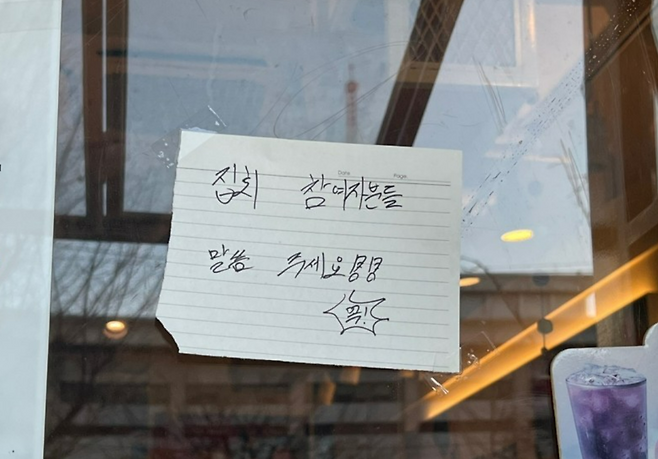 Date Page
집회 참여자분들
말씀 주세요
꼭!